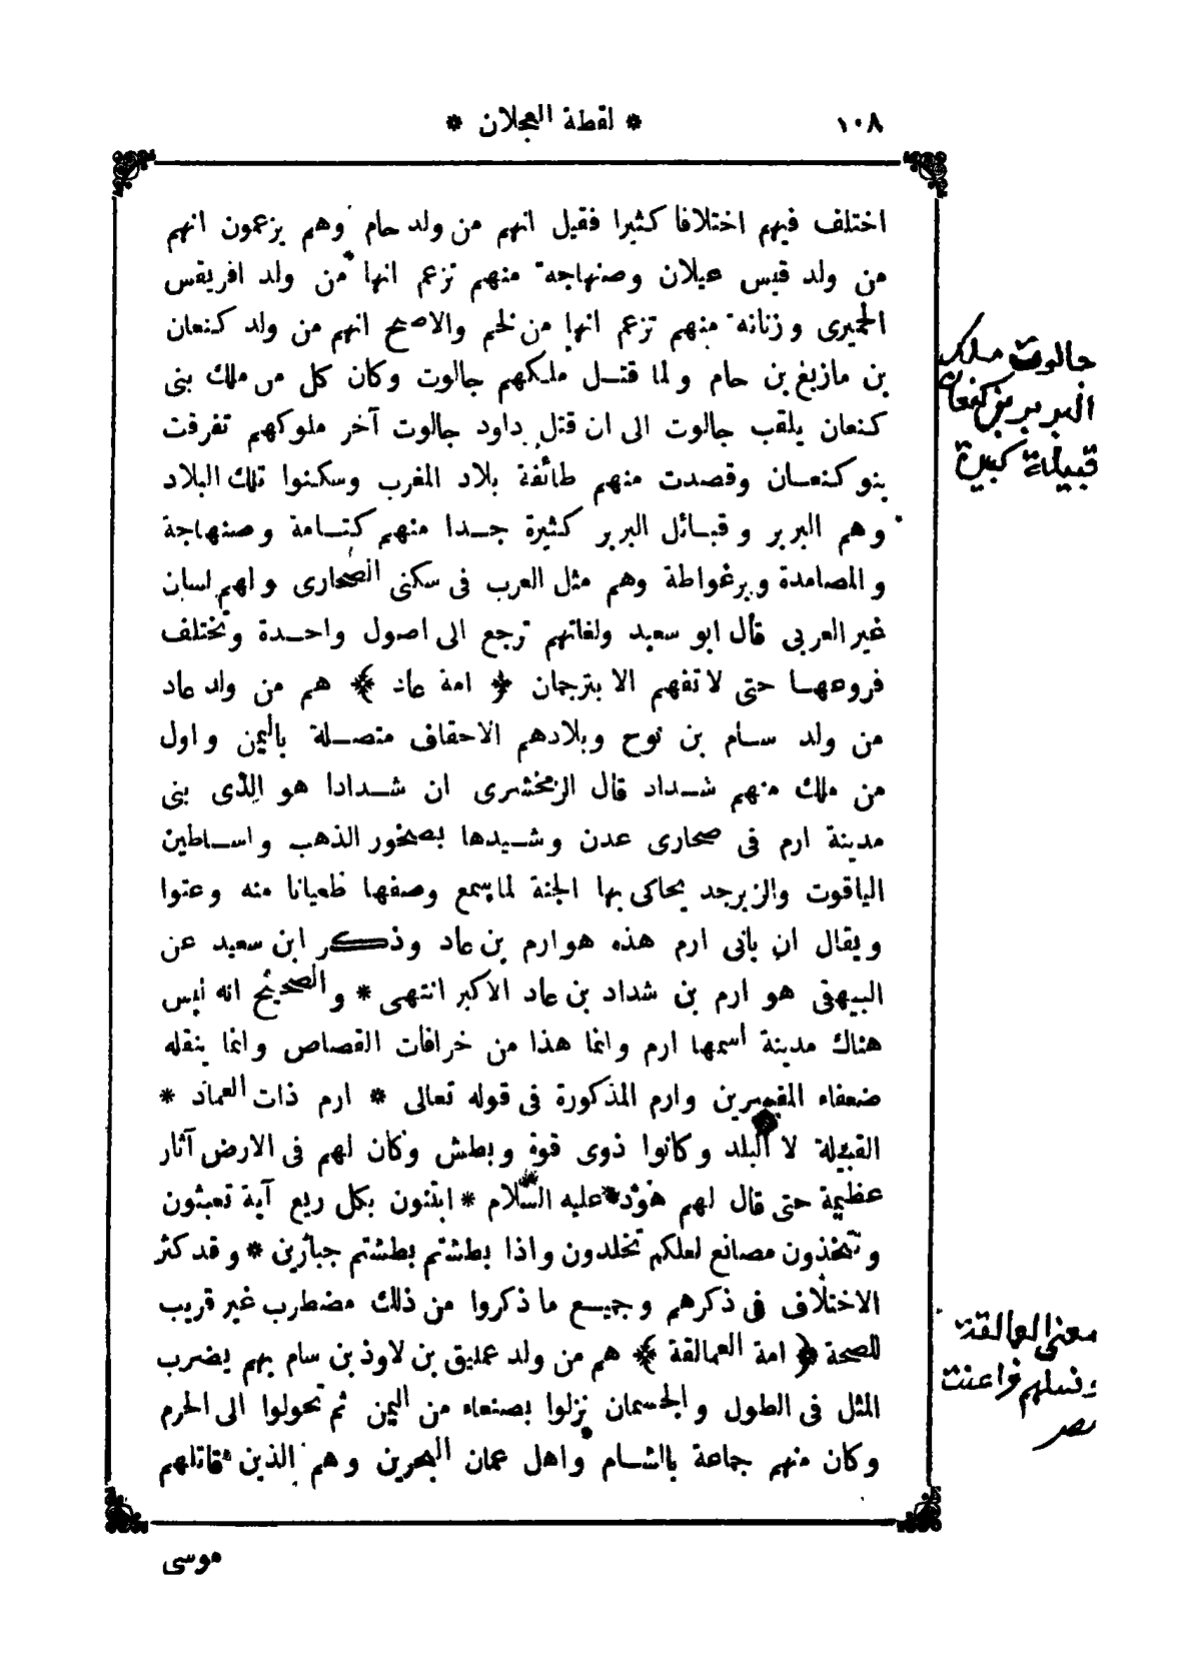 ١٠٨
* لقطة العجلان *
اختلف فيهم اختلافا كثيرا فقيل انهم من ولد حام وهم يزعمون انهم
من ولد قيس عيلان وصنهاجة منهم تزعم انها من ولد افريقس
الحميرى وزنانه منهم تزعم انها من لخم والاصح انهم من ولد كنعان
بن مازيغ بن حام ولما قتل مليكهم جالوت وكان كل من ملك بنى
كنعان يلقب جالوت الى ان قتل داود جالوت آخر ملوكهم تفرقت
بنو كنعان وقصدت منهم طائفة بلاد المغرب وسكنوا تلك البلاد
وهم البربر وقبائل البربر كثيرة جدا منهم كتامة وصنهاجة
والمصامدة وبرغواطة وهم مثل العرب فى سكنى الصحارى ولهم لسان
غير العربى قال ابو سعيد ولغاتهم ترجع الى اصول واحدة وتختلف
فروعها حتى لا تفهم الا بترجمان ﴿ امة عاد ﴾ هم من ولد عاد
من ولد سام بن نوح وبلادهم الاحقاف متصلة باليمن واول
من ملك منهم شداد قال الزمخشرى ان شدادا هو الذى بنى
مدينة ارم فى صحارى عدن وشيدها بصخور الذهب واساطين
الياقوت والزبرجد يحاكى بها الجنة لما سمع وصفها طغيانا منه وعتوا
ويقال ان بانى ارم هذه هو ارم بن عاد وذكر ابن سعيد عن
البيهقى هو ارم بن شداد بن عاد الاكبر انتهى * والصحيح انه ليس
هناك مدينة اسمها ارم وانما هذا من خرافات القصاص وانما ينقله
ضعفاء المفسرين وارم المذكورة فى قوله تعالى * ارم ذات العماد *
القبيلة لا البلد وكانوا ذوى قوة وبطش وكان لهم فى الارض آثار
عظيمة حتى قال لهم هود عليه السلام * ابتنون بكل ريع آية تعبثون
وتتخذون مصانع لعلكم تخلدون واذا بطشتم بطشتم جبارين * وقد كثر
الاختلاف فى ذكرهم وجميع ما ذكروا من ذلك مضطرب غير قريب
للصحة ﴿ امة العمالقة ﴾ هم من ولد عمليق بن لاوذ بن سام بهم يضرب
المثل فى الطول والجسمان نزلوا بصنعاء من اليمن ثم تحولوا الى الحرم
وكان منهم جماعة بالشام واهل عمان البحرين وهم الذين قاتلهم
موسى
جالوت ملك
البربر بن كنعان
قبيلة كبيرة
معنى العمالقة
ونسلهم فراعنت
مصر